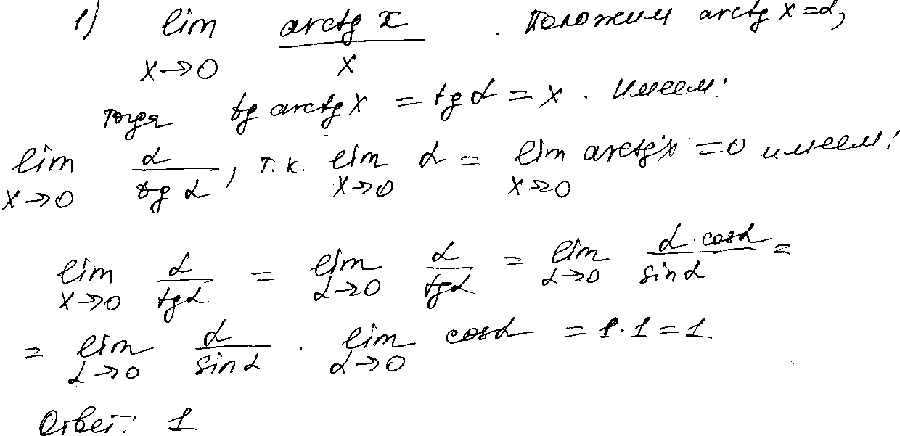 1) lim x→0 arctg x / x . Положим arctg x = α,
тогда tg arctg x = tg α = x . Имеем:
lim x→0 α / tg α , т.к. lim x→0 α = lim x→0 arctg x = 0 имеем:
lim x→0 α / tg α = lim α→0 α / tg α = lim α→0 α · cos α / sin α =
= lim α→0 α / sin α · lim α→0 cos α = 1 · 1 = 1.
Ответ: 1